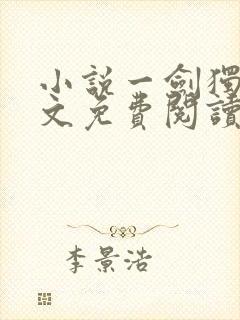 小說一劍獨
文免費閱讀
李景浩